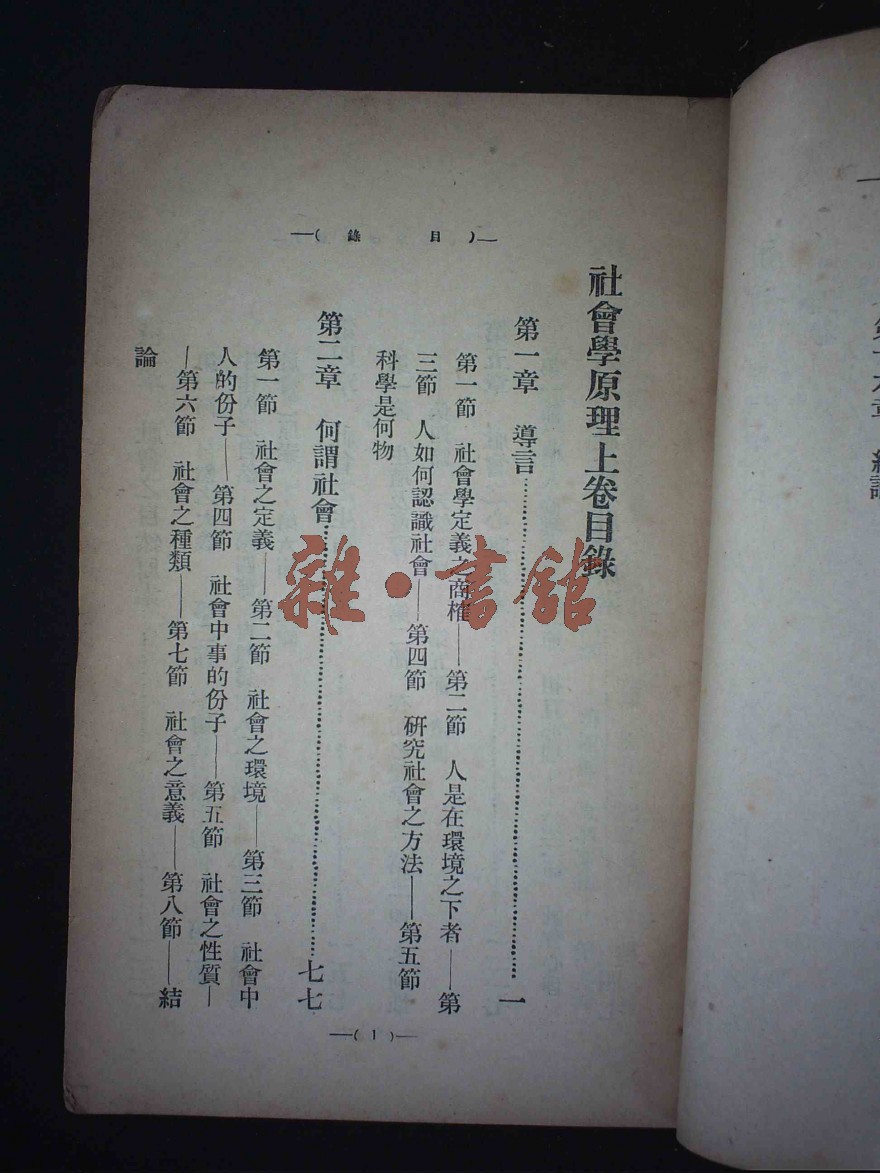 —( 目錄 )—
社會學原理上卷目錄
第一章 導言……一
第一節 社會學定義之商榷——第二節 人是在環境之下者——第
三節 人如何認識社會——第四節 研究社會之方法——第五節
科學是何物
第二章 何謂社會……七七
第一節 社會之定義——第二節 社會之環境——第三節 社會中
人的份子——第四節 社會中事的份子——第五節 社會之性質—
—第六節 社會之種類——第七節 社會之意義——第八節——結
論
—( 1 )—
雜·書館